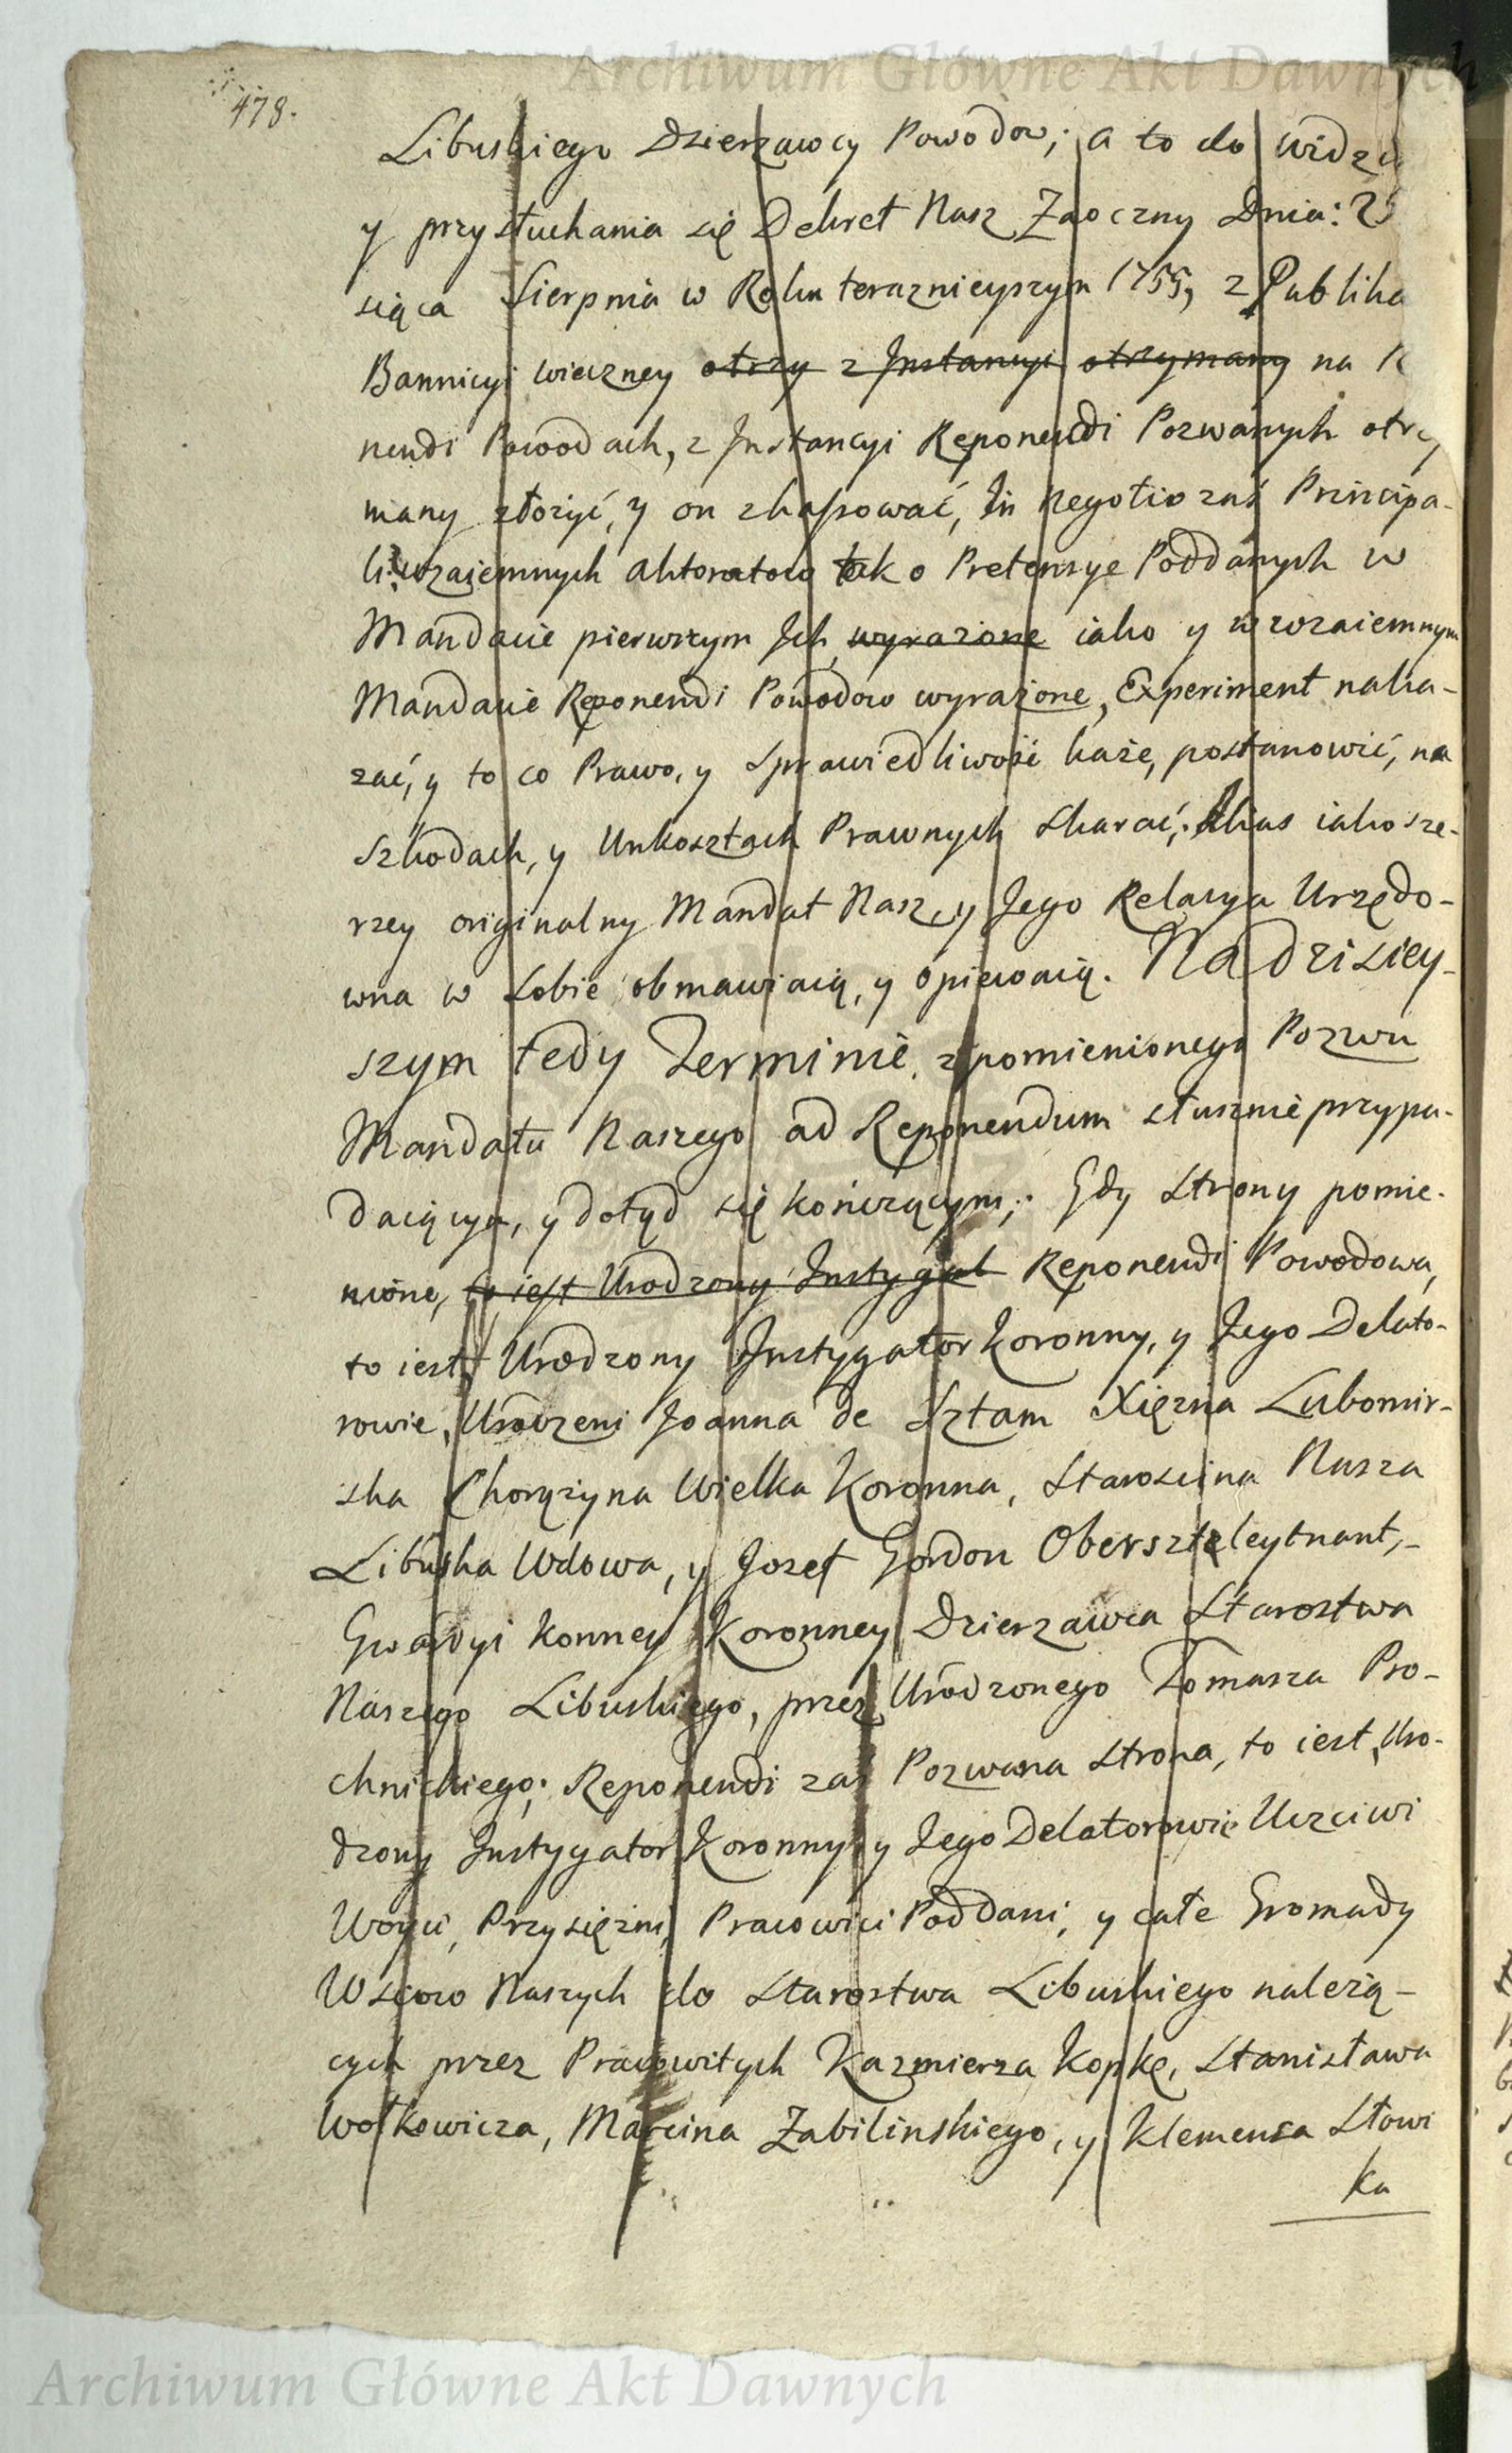 Archiwum Główne Akt Dawnych
478.
Libuskiego Dzierzawcy Powodow; a to do widze
y przysłuchania się Dekret Nasz Zaoczny Dnia:
siąca Sierpnia w Roku teraznieyszym 1755, z Publika
Bannicyi wieczney otrzy z Instancyi otrzymany na R
nendi Powodach, z Instancyi Reponendi Pozwanych otrzy
many złożyć, y on skassować, In Negotio zaś Principa-
li wzaiemnych Aktoratow tak o Pretensye Poddanych w
Mandacie pierwszym Ich wyrażone iako y w wzaiemnym
Mandacie Reponendi Powodow wyrażone, Experiment naka-
zać, y to co Prawo, y Sprawiedliwość każe, postanowić, na
Szkodach, y Unkosztach Prawnych skarać; Alias iako sze-
rzey originalny Mandat Nasz, y Jego Relacya Urzędo-
wna w sobie obmawiaią, y opiewaią. Na dzisiey-
szym tedy Terminie z pomienionego Pozwu
Mandatu Naszego ad Reponendum słusznie przypa-
daiącym, y dotyd się kończącym; Gdy strony pomie-
nione, to iest Urodzony Instygat Reponendi Powodowa,
to iest Urodzony Instygator Koronny, y Jego Delato-
rowie, Urodzeni Joanna de Sztam Xięzna Lubomir-
ska Chorązyna Wielka Koronna, Starościna Nasza
Libuska Wdowa, y Jozef Gordon Obersztleytnant,-
Gwardyi Konney Koronney Dzierzawca Starostwa
Naszego Libuskiego, przez Urodzonego Tomasza Pro-
chnickiego; Reponendi zaś Pozwana strona, to iest, Uro-
dzony Instygator Koronny y Jego Delatorowie Uczciwi
Woyci, Przysięzni, Pracowici Poddani, y całe Gromady
Wsiow Naszych do Starostwa Libuskiego należą-
cych przez Pracowitych Kazmierza Kopkę, Stanisława
Wołkowicza, Marcina Zabilinskiego, y Klemensa Słowi
ka
Archiwum Główne Akt Dawnych